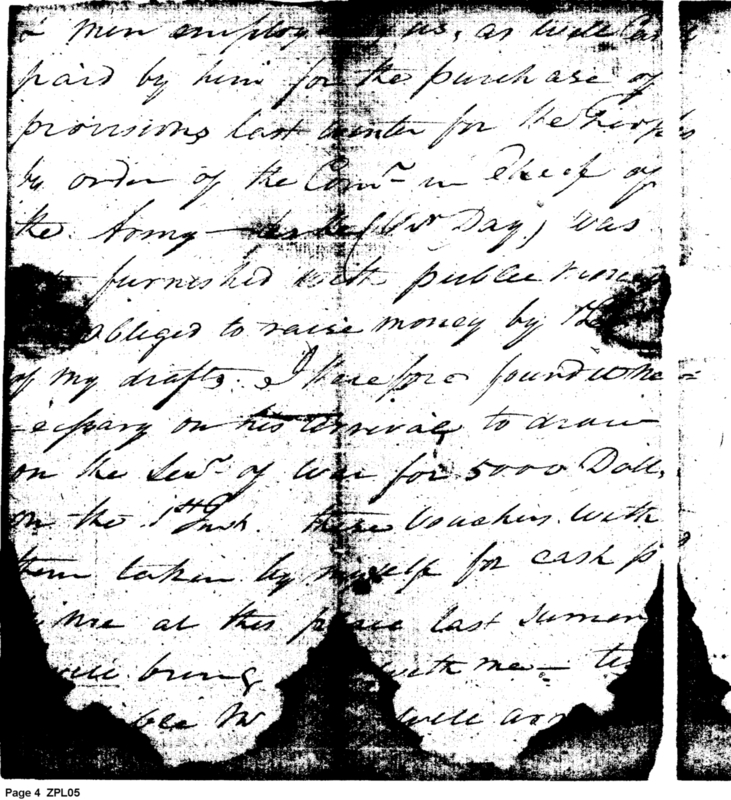 & men employ us, as well Cash
paid by him for the purchase of
provisions last winter for the Troops
by order of the Comr in Cheif of
the Army — (Mr Day) was
furnished with public money
obliged to raise money by the
of my drafts. I therefore found it ne=
=cessary on his arrival to draw
on the Secy of War for 5000 Dolls
on the 1st Inst. these Vouchers with
them taken by myself for cash pd
me at this place last summer
will bring with me —
well